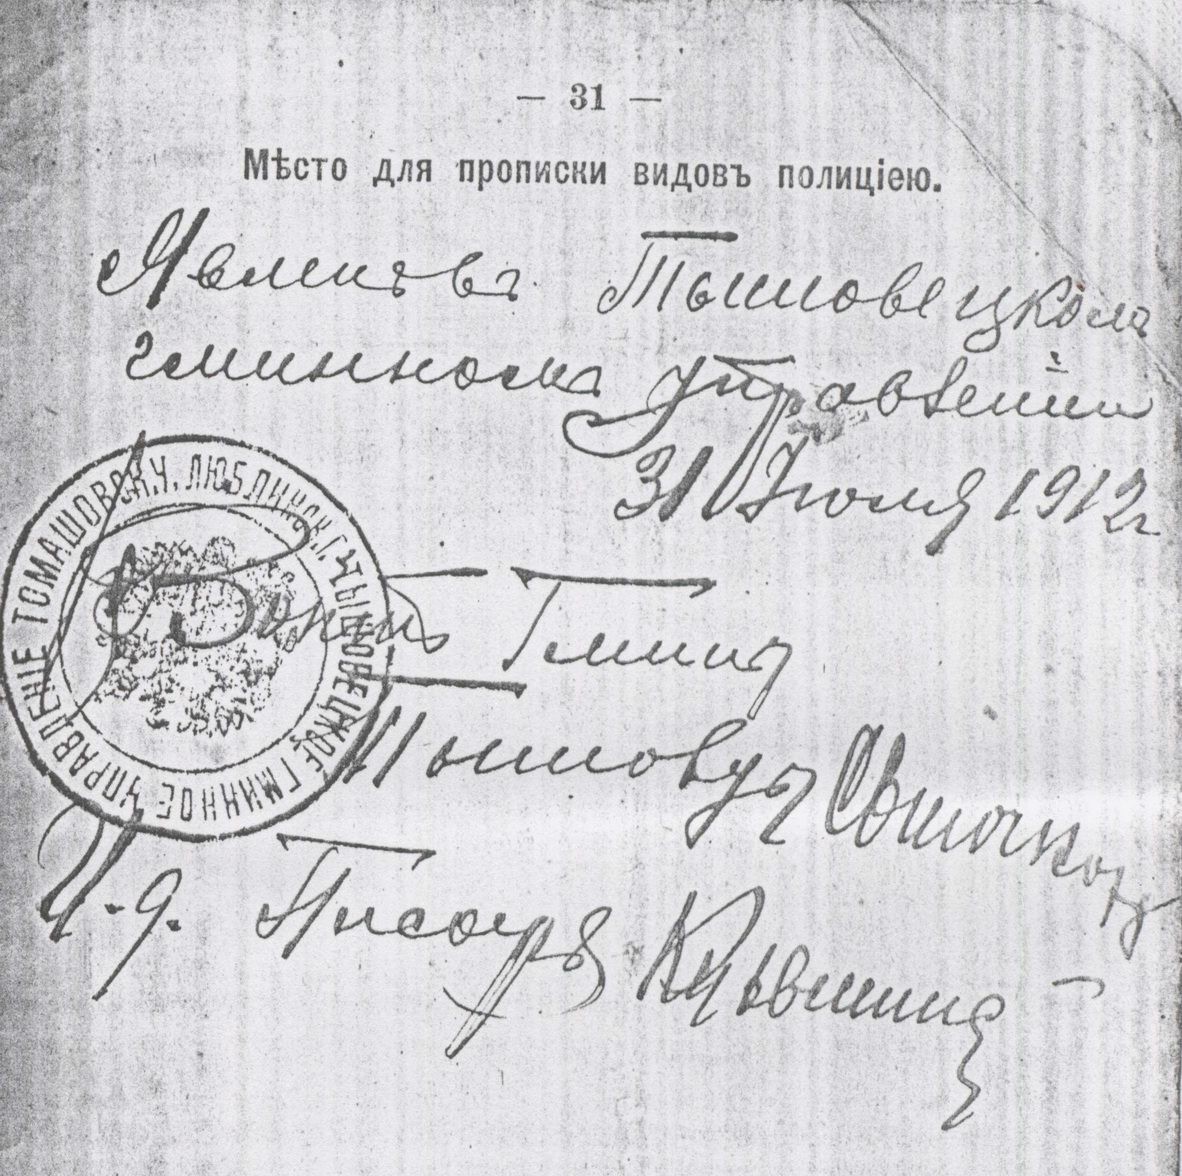 — 31 —
Мѣсто для прописки видовъ полиціею.
Явленъ въ Тышовецкомъ
гминномъ управленіи
31 Іюля 1912 г.
ТЫШОВЕЦКОЕ ГМИННОЕ УПРАВЛЕНІЕ ТОМАШОВСК. У. ЛЮБЛИНСК. Г.
Войтъ Гмины
Тышовцы
И. д. Писаря